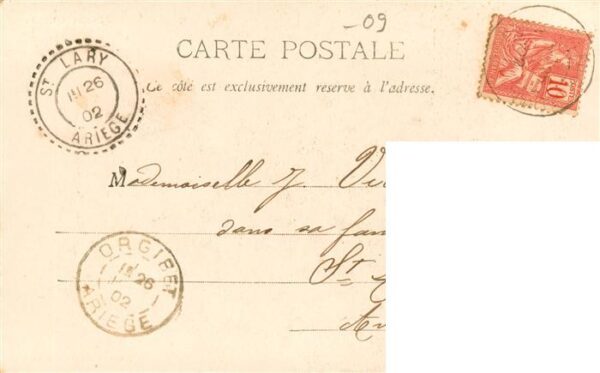 -09
CARTE POSTALE
Ce côté est exclusivement reserve à l'adresse.
ST LARY
26
02
ARIEGE
10
Mademoiselle J. Vi
dans sa fam
St
ORGIBET
26
02
ARIEGE